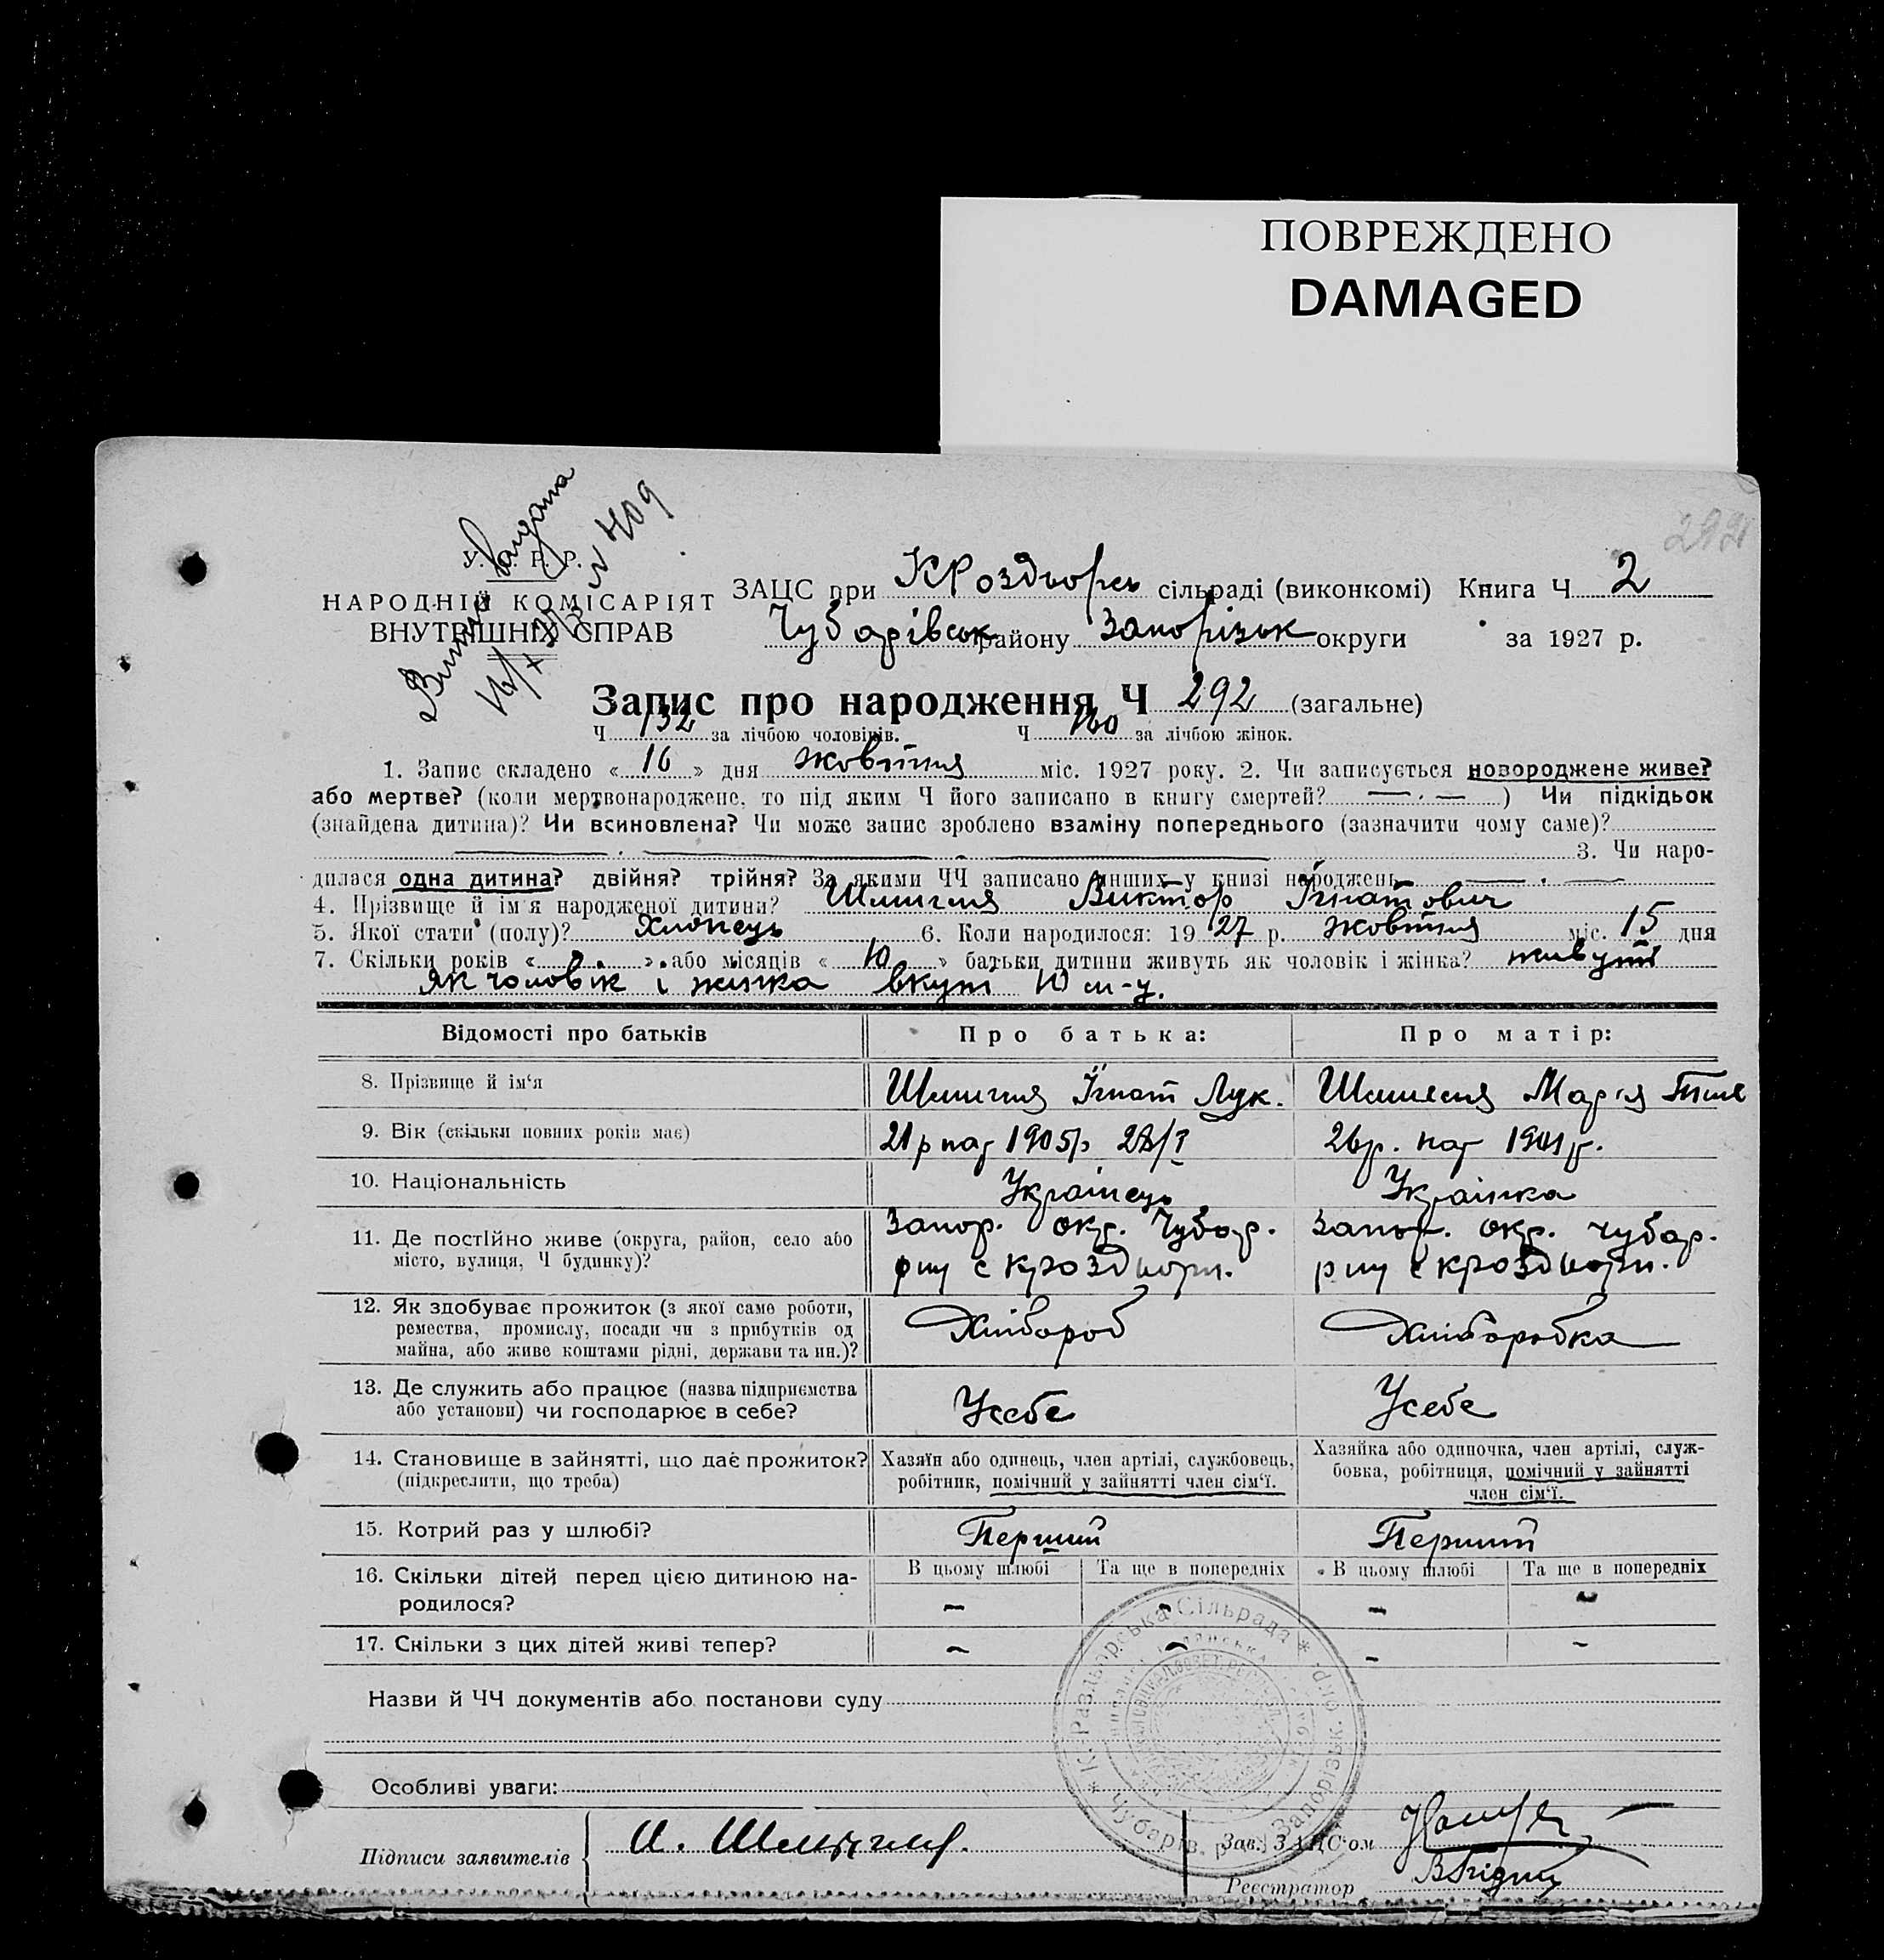 ПОВРЕЖДЕНО
DAMAGED
292
У. Р. Р.
НАРОДНІЙ КОМІСАРІЯТ
ВНУТРІШНІХ СПРАВ
видана
ЗАЦС при КРоздорсь сільраді (виконкомі) Книга Ч 2
Чубарівськ району Запорізьк округи за 1927 р.
Запис про народження Ч 292 (загальне)
Ч 132 за лічбою чоловіків. Ч 160 за лічбою жінок.
1. Запис складено « 16 » дня жовтня міс. 1927 року. 2. Чи записується новороджене живе?
або мертве? (коли мертвонароджене, то під яким Ч його записано в книгу смертей? — . — ) Чи підкідьок
(знайдена дитина)? Чи всиновлена? Чи може запис зроблено взаміну попереднього (зазначити чому саме)?
3. Чи наро-
дилася одна дитина? двійня? трійня? За якими ЧЧ записано инших у книзі народжень — . —
4. Прізвище й ім'я народженої дитини? Виктор Ігнатович
5. Якої стати (полу)? Хлопець 6. Коли народилося: 19 27 р. жовтня міс. 15 дня
7. Скільки років « » або місяців « 10 » батьки дитини живуть як чоловік і жінка? живуть
як чоловік і жинка вкупі 10 м-ц.
Відомості про батьків Про батька: Про матір:
8. Прізвище й ім'я Ігнат Лук. Марія
9. Вік (скільки повних років має) 21 р 1905р 26р. 1901 р.
10. Національність Українець Українка
11. Де постійно живе (округа, район, село або місто, вулиця, Ч будинку)?
Запор. окр. Чубар. Запор. окр. чубар.
12. Як здобуває прожиток (з якої саме роботи, ремества, промислу, посади чи з прибутків од майна, або живе коштами рідні, держави та ин.)?
Хлібороб Хліборобка
13. Де служить або працює (назва підприємства або установи) чи господарює в себе?
Усебе Усебе
14. Становище в зайнятті, що дає прожиток? (підкреслити, що треба)
Хазяїн або одинець, член артілі, службовець, робітник, помічний у зайнятті член сім'ї.
Хазяйка або одиночка, член артілі, служ-
бовка, робітниця, помічний у зайнятті
член сім'ї.
15. Котрий раз у шлюбі? Перший Перший
16. Скільки дітей перед цією дитиною на-
родилося?
В цьому шлюбі Та ще в попередніх В цьому шлюбі Та ще в попередніх
– – – –
17. Скільки з цих дітей живі тепер? – – – –
Назви й ЧЧ документів або постанови суду
Особливі уваги:
Підписи заявителів
Зав. ЗАЦС'ом
Реєстратор